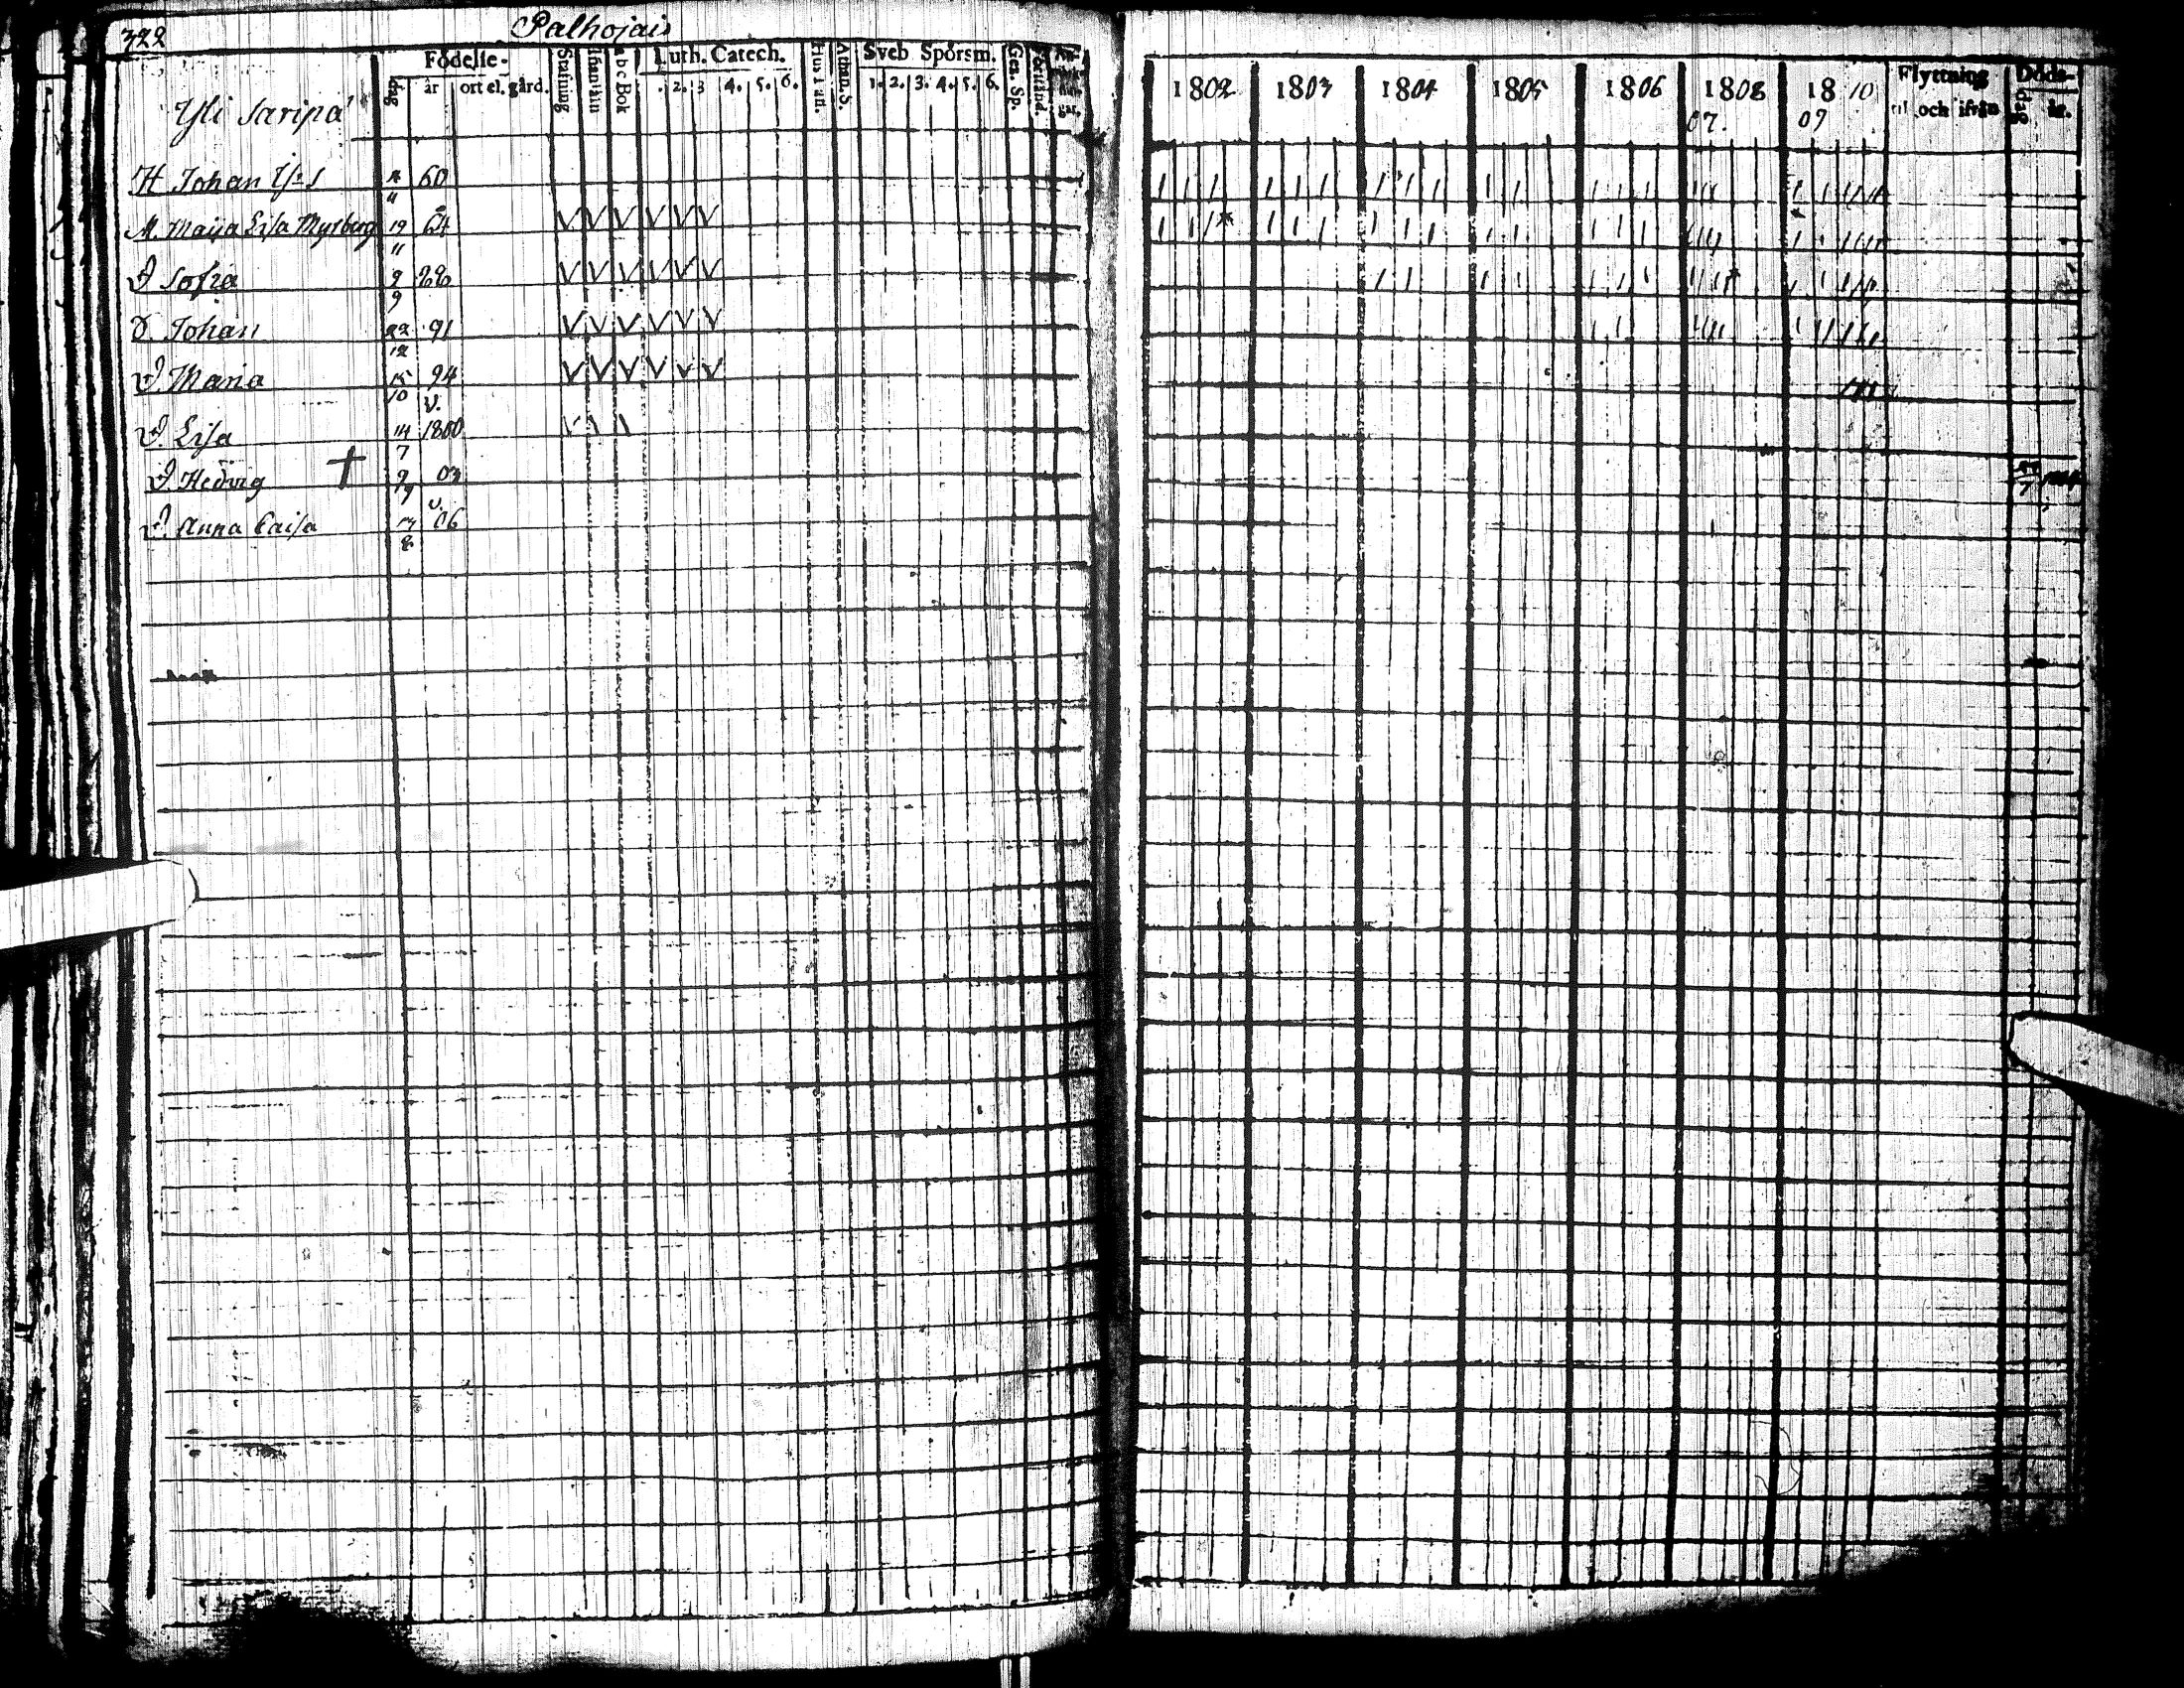 322
Palhojais
Yli Saripä
Födelse-
dag
år
ort el. gård.
Stafning
Abc Bok
Luth. Catech.
2. 3 4. 5. 6.
Athan. S.
Sveb Spörsm.
1. 2. 3. 4. 5. 6.
Gez. Sp.
Förstånd.
1802 1803 1804 1805 1806 1808 18 10
07. 09
Flyttning
til och ifrån
Döds-
dag år.
H Johan 60
11
M. Maija Lisa Myrberg 19 64
11
D Sofia
9
D. Johan 22 91
12
D. Maria 15 94
10
D. Lisa 14 1800
7
D. Hedvig † 9 03
D. Anna Caisa 06
8